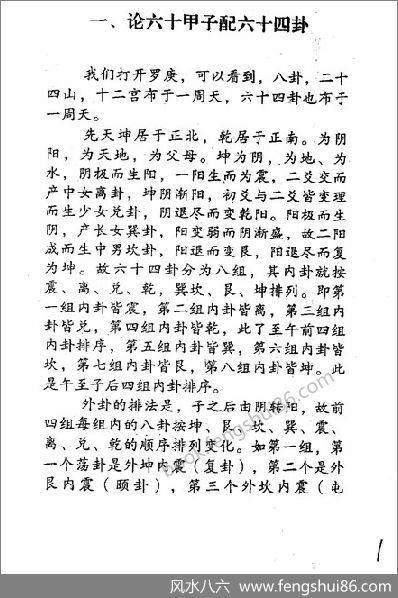 一、论六十甲子配六十四卦
我们打开罗庚，可以看到，八卦，二十
四山，十二宫布于一周天，六十四卦也布于
一周天。
先天坤居于正北，乾居于正南。为阴
阳，为天地，为父母。坤为阴，为地、为
水，阴极而生阳，一阳生而为震，二爻变而
产中女离卦，坤阴渐阳，初爻与二爻皆变理
而生少女兑卦，阴退尽而变乾阳。阳极而生
阴，产长女巽卦，阳变弱而阴渐盛，故二阳
成而生中男坎卦，阳退而变艮，阳退尽而复
为坤。故六十四卦分为八组，其内卦就按
震、离、兑、乾，巽坎、艮、坤排列。即第
一组内卦皆震，第二组内卦皆离，第三组内
卦皆兑，第四组内卦皆乾，此了至午前四组
内卦排序，第五组内卦皆巽，第六组内卦皆
坎，第七组内卦皆艮，第八组内卦皆坤。此
是午至子后四组内卦排序。
外卦的排法是，子之后由阴转阳，故前
四组每组内的八卦按坤、艮、坎、巽、震、
离、兑、乾的顺序排列变化。如第一组，第
一个荡卦是外坤内震（复卦），第二个是外
艮内震（颐卦），第三个外坎内震（屯
1
book.fengshui86.com
风水八六－www.fengshui86.com